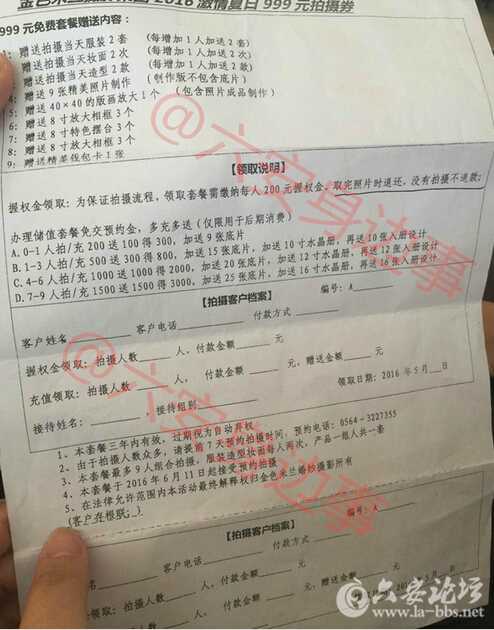 2016激情夏日999元拍摄券
999元免费套餐赠送内容:
赠送拍摄当天服装2套 (每增加1人加送2套)
赠送拍摄当天妆面2次 (每增加1人加送2次)
赠送拍摄当天造型2款 (每增加1人加送2款)
4: 赠送9张精美照片制作 (制作版不包含底片)
5: 赠送40×40的版画放大1个 (包含照片成品制作)
6: 赠送8寸放大相框3个
7: 赠送8寸特色摆台3个
8: 赠送8寸放大相框3个
9: 赠送精美钱包卡1张
【领取说明】
握权金领取: 为保证拍摄流程, 领取套餐需缴纳每人200元握权金, 取完照片时退还, 没有拍摄不退款;
办理储值套餐免交预约金, 多充多送(仅限用于后期消费)
A. 0-1人拍/充200送100得300, 加送9张底片
B. 1-3人拍/充500送300得800, 加送15张底片, 加送10寸水晶册, 再送10张入册设计
C. 4-6人拍/充1000送1000得2000, 加送20张底片, 加送12寸水晶册, 再送12张入册设计
D. 7-9人拍/充1500送1500得3000, 加送25张底片, 加送16寸水晶册, 再送16张入册设计
【拍摄客户档案】
编号: A
客户姓名 客户电话 付款方式
握权金领取: 拍摄人数 人、付款金额 元
充值领取: 拍摄人数 人, 付款金额 元、赠送金额 元
接待姓名: , 接待组别
领取日期: 2016年5月 日
1、本套餐三年内有效, 过期视为自动弃权
2、由于拍摄人数众多, 请提前7天预约拍摄时间, 预约电话: 0564-3227355
3、本套餐最多9人组合拍摄, 服装造型妆面每人两次, 产品一组人共一套
4、本套餐于2016年6月11日起接受预约拍摄
5、在法律允许范围内本活动最终解释权归金色米兰婚纱摄影所有
(客户存根联:)
【拍摄客户档案】
编号: A
名 客户电话 付款方式
金领取: 拍摄人数 人、付款金额 元
取: 拍摄人数 人, 付款金额 元、赠送金额 元
@六安身边事
@六安身边事
六安论坛
www.la-bbs.net